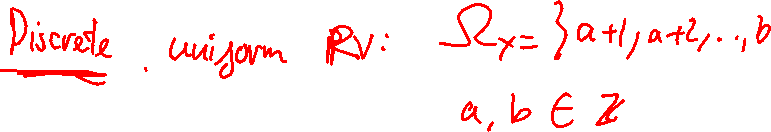 Discrete uniform RV: Ωx = {a+1, a+2, .., b
a, b ∈ ℤ